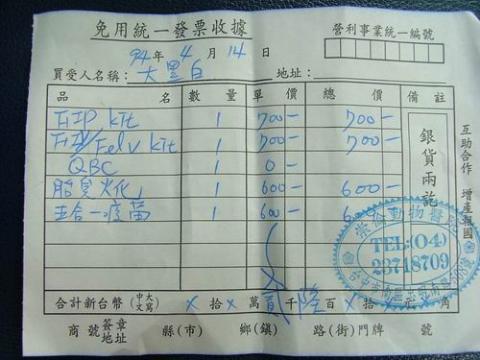 免用統一發票收據
營利事業統一編號
94年 4 月 14 日
買受人名稱：大黑白 地址：
品 名 數 量 單 價 總 價 備 註
FIP kit 1 700- 700-
FIV/Felv kit 1 700- 700-
QBC 1 0-
火化 1 600- 600-
五合一疫苗 1 600-
銀貨兩訖
互助合作 增產報國
動物醫院
TEL:(04)
23718709
合計新台幣(中文大寫) X 拾 X 萬 貳 千 陸 百 X 拾 X 元 角
商號簽章地址 縣(市) 鄉(鎮) 路(街)門牌 號